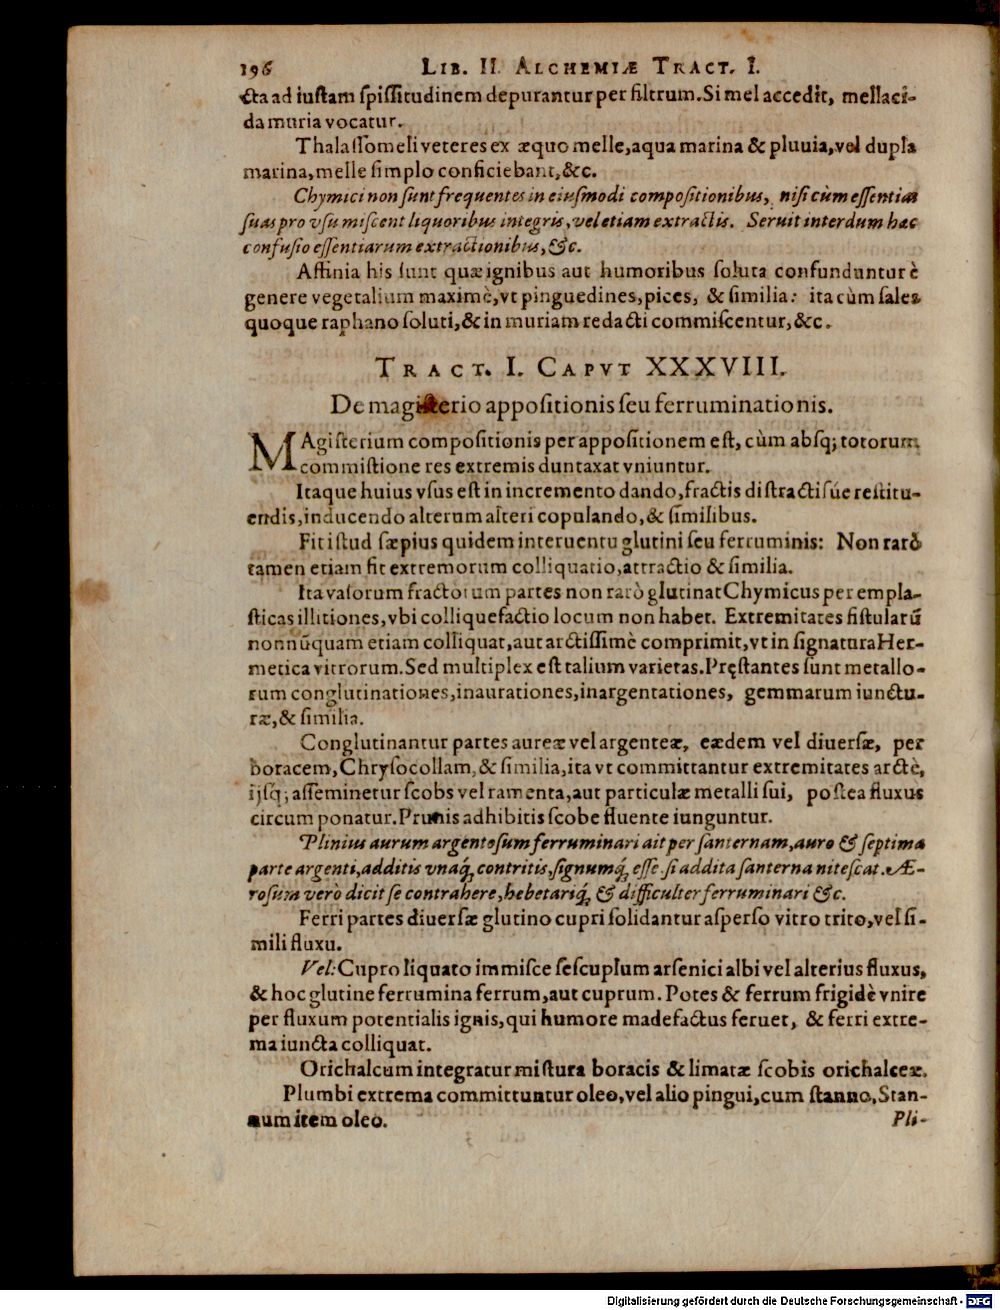 196 LIB. II. ALCHEMIÆ TRACT. I.
cta ad iustam spissitudinem depurantur per filtrum. Si mel accedit, mellaci-
da muria vocatur.
Thalassomeli veteres ex æquo melle, aqua marina & pluuia, vel dupla
marina, melle simplo conficiebant, &c.
Chymici non sunt frequentes in eiusmodi compositionibus, nisi cùm essentias
suas pro vsu miscent liquoribus integris, vel etiam extractis. Seruit interdum hæc
confusio essentiarum extractionibus, &c.
Affinia his sunt quæ ignibus aut humoribus soluta confunduntur è
genere vegetalium maximè, vt pinguedines, pices, & similia: ita cùm sales
quoque raphano soluti, & in muriam redacti commiscentur, &c.
TRACT. I. CAPVT XXXVIII.
De magisterio appositionis seu ferruminationis.
MAgisterium compositionis per appositionem est, cùm absq; totorum
commistione res extremis duntaxat vniuntur.
Itaque huius vsus est in incremento dando, fractis distractisúe restitu-
endis, inducendo alterum alteri copulando, & similibus.
Fit istud sæpius quidem interuentu glutini seu ferruminis: Non rarò
tamen etiam fit extremorum colliquatio, attractio & similia.
Ita vasorum fractorum partes non rarò glutinat Chymicus per empla-
sticas illitiones, vbi colliquefactio locum non habet. Extremitates fistularũ
nonnũquam etiam colliquat, aut arctissimè comprimit, vt in signatura Her-
metica vitrorum. Sed multiplex est talium varietas. Pręstantes sunt metallo-
rum conglutinationes, inaurationes, inargentationes, gemmarum iunctu-
ræ, & similia.
Conglutinantur partes aureæ vel argenteæ, eædem vel diuersæ, per
boracem, Chrysocollam, & similia, ita vt committantur extremitates arctè,
ijsq; asseminetur scobs vel ramenta, aut particulæ metalli sui, postea fluxus
circum ponatur. Prunis adhibitis scobe fluente iunguntur.
Plinius aurum argentosum ferruminari ait per santernam, auro & septima
parte argenti, additis vnaq́; contritis, signumq́; esse si addita santerna nitescat. Æ-
rosum verò dicit se contrahere, hebetariq́; & difficulter ferruminari &c.
Ferri partes diuersæ glutino cupri solidantur asperso vitro trito, vel si-
mili fluxu.
Vel: Cupro liquato immisce sescuplum arsenici albi vel alterius fluxus,
& hoc glutine ferrumina ferrum, aut cuprum. Potes & ferrum frigidè vnire
per fluxum potentialis ignis, qui humore madefactus feruet, & ferri extre-
ma iuncta colliquat.
Orichalcum integratur mistura boracis & limatæ scobis orichalceæ.
Plumbi extrema committuntur oleo, vel alio pingui, cum stanno, Stan-
num item oleo. Pli-
Digitalisierung gefördert durch die Deutsche Forschungsgemeinschaft - DFG